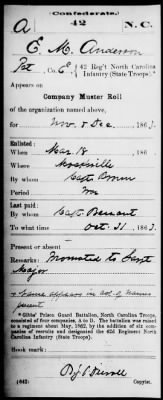 (Confederate.)
A 42 N. C.
E. M. Anderson
Pvt, Co. E, 42 Reg't North Carolina
Infantry (State Troops).
Appears on
Company Muster Roll
of the organization named above,
for Nov. & Dec., 1863.
Enlisted:
When Mar 18, 186
Where Mocksville
By whom Capt Brown
Period War
Last paid:
By whom Capt
To what time Oct. 31, 1863
Present or absent
Remarks: Promoted to Sergt
Major
Name appears in col. of names
present
* Gibbs' Prison Guard Battalion, North Carolina Troops,
consisted of four companies, A to D. The battalion was raised
to a regiment about May, 1862, by the addition of six com-
panies of recruits and designated the 42d Regiment North
Carolina Infantry (State Troops).
Book mark:
(642) Copyist.